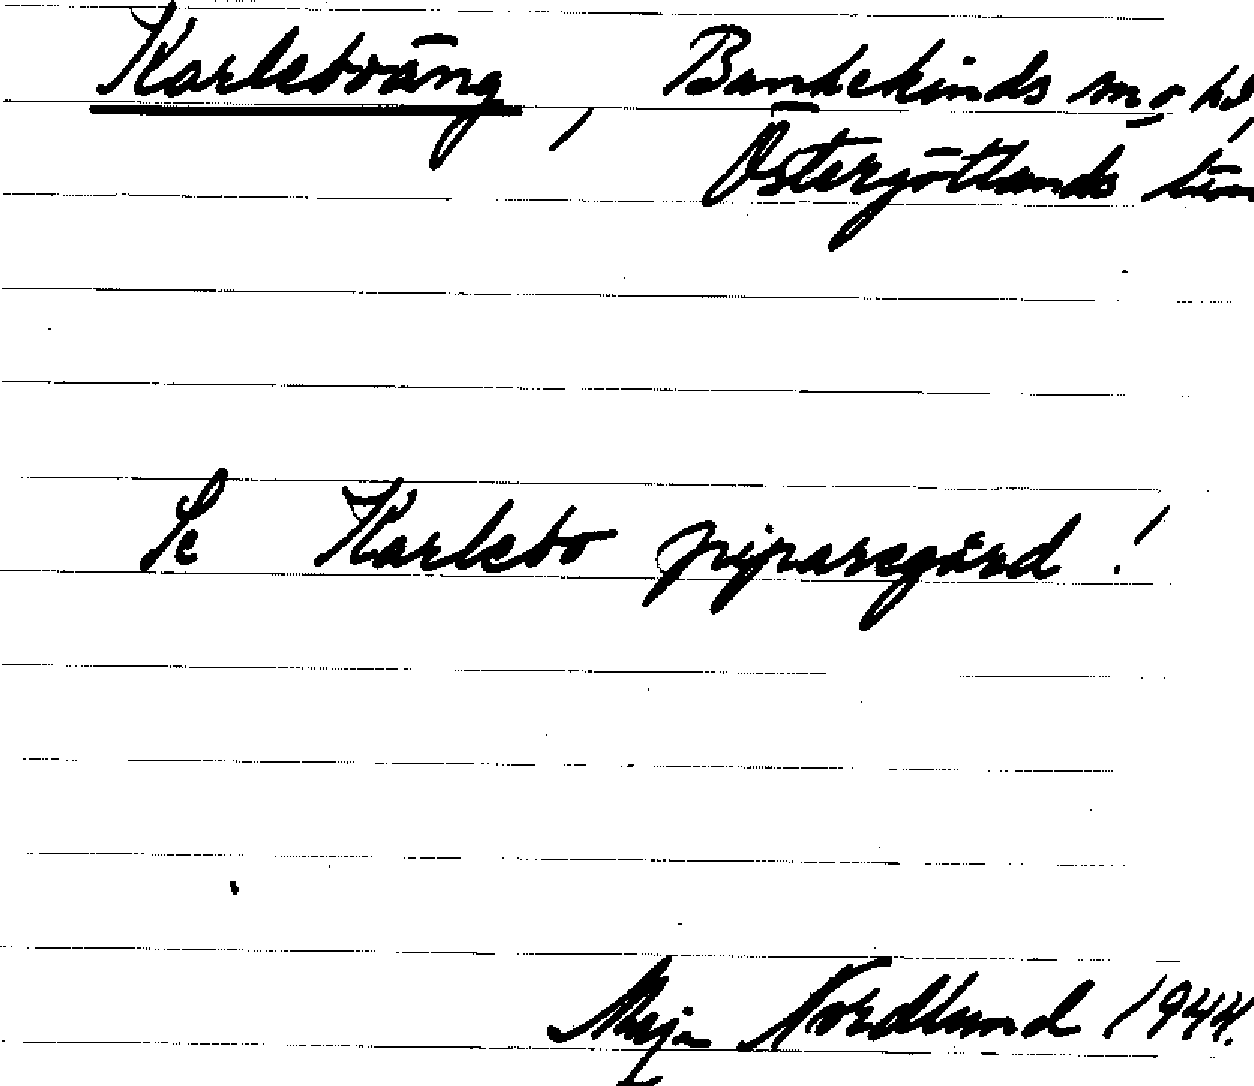 Karlsbväng, Bankekinds sn o hd,
Östergötlands län
Se Karlsbo piparegård!
Maja Nordlund 1944.